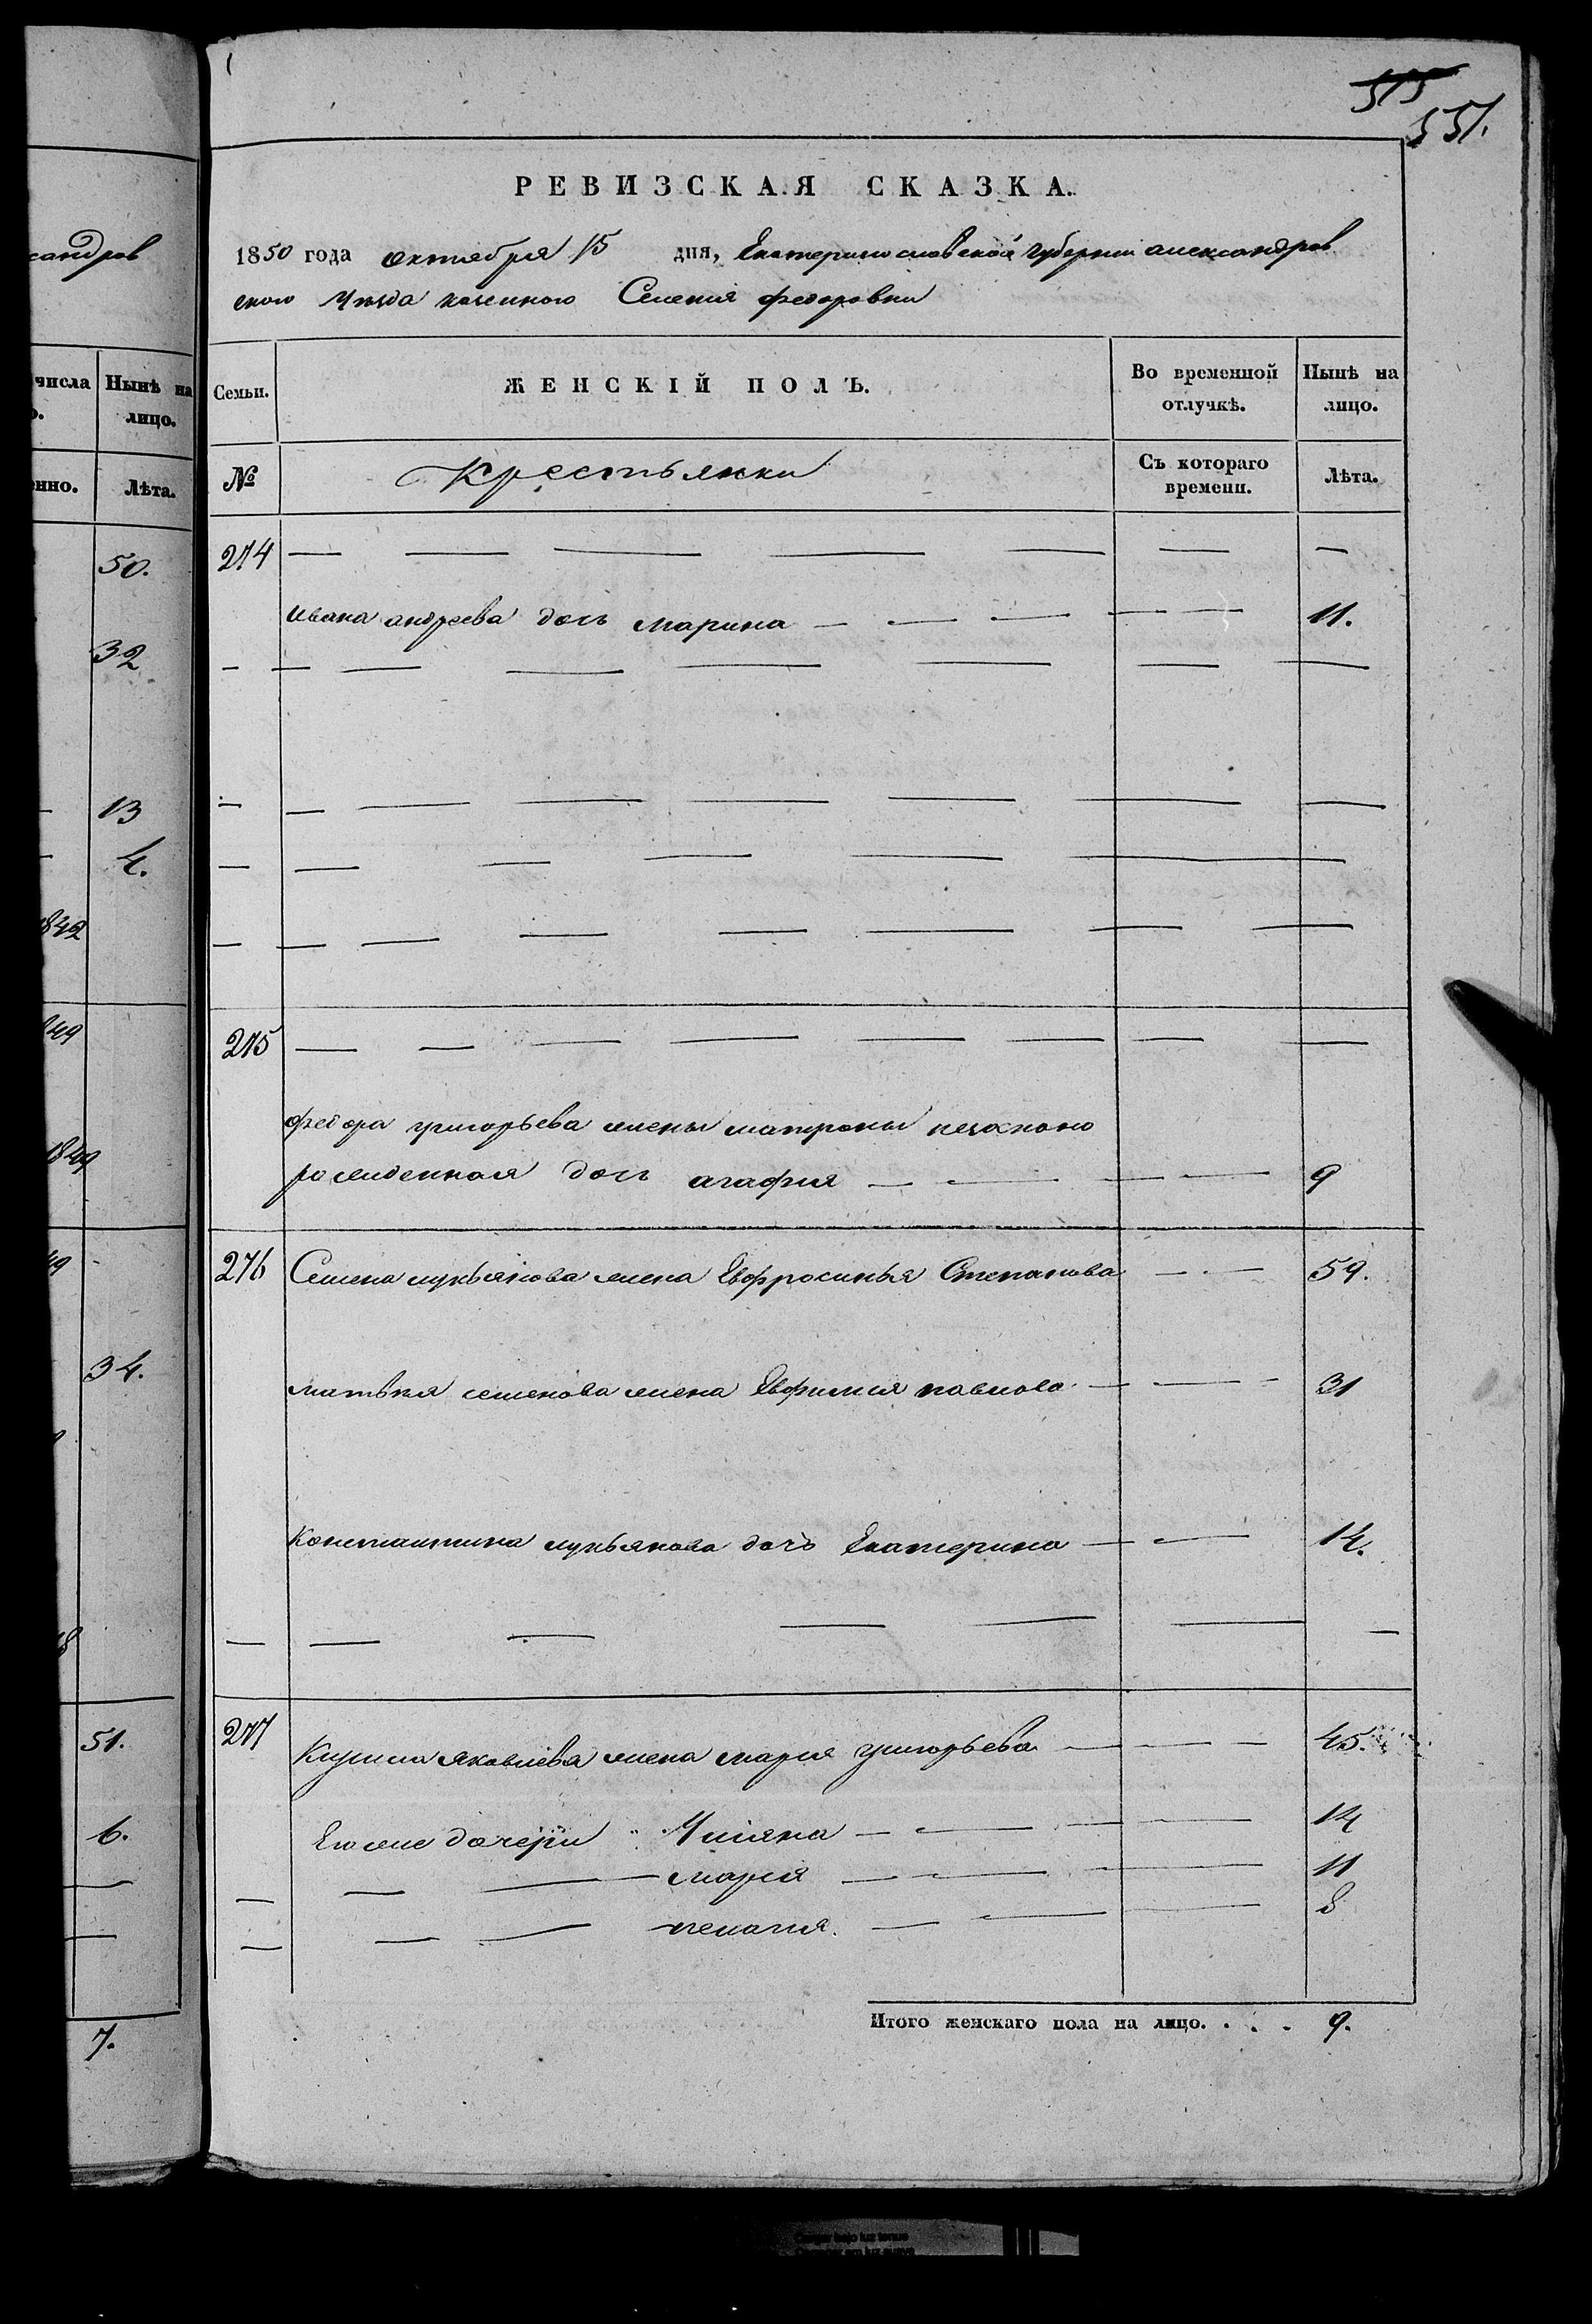 515
551.
сандров
числа
Нынѣ на
лицо.
нно.
Лѣта.
50.
32
13
4.
1842
1849
34.
51.
6.
7.
РЕВИЗСКАЯ СКАЗКА.
1850 года октября 15 дня, Екатеринославской губерніи александров
ского уѣзда казенного Селенія федоровки
Семьи.
ЖЕНСКІЙ ПОЛЪ.
Во временной
отлучкѣ.
Нынѣ на
лицо.
№
Крестьянки
Съ котораго
времени.
Лѣта.
274
ивана андреева дочь марина 11.
275
федора григорьева жены матроны незаконо
рожденная дочь агафия 9
276 Семена лукьянова жена Евфросинья Степанова 59.
матвея семенова жена Евфимия павлова 31
Константина лукьянова дочь Екатерина 14.
277
Кузьма яковлева жена мария григорьева 45.
Его же дочери Уляна 14
мария 11
пелагия. 8
Итого женскаго пола на лицо. . . . 9.